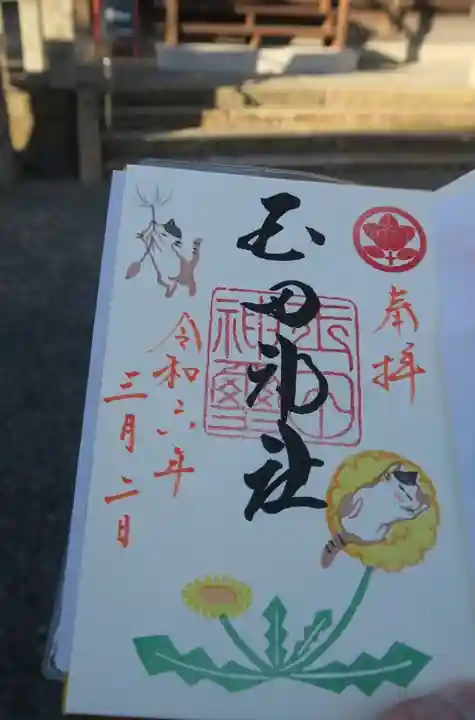 奉拝
玉田神社
令和六年
三月二日